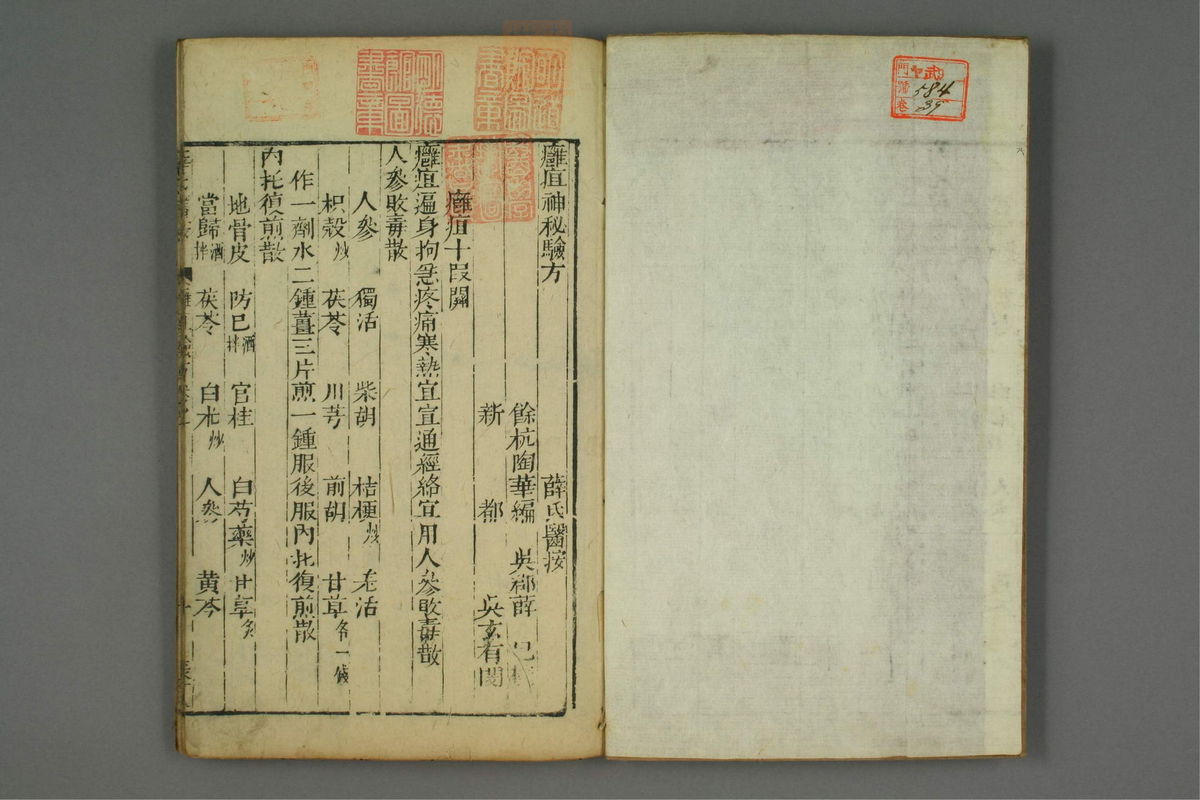 武
門
號
卷
584
39
癰疽神秘驗方 薛氏醫按
餘杭陶華編 吳郡薛己
新都 吳玄有閱
癰疽十段關
癰疽遍身拘急疼痛寒熱宜宜通經絡宜用人參敗毒散
人參敗毒散
人參 獨活 柴胡 桔梗炒 羌活
枳殼炒 茯苓 川芎 前胡 甘草各一錢
作一劑水二鍾薑三片煎一鍾服後服內托復煎散
內托復煎散
地骨皮 防已酒拌 官桂 白芍藥炒 甘草炙
當歸酒拌 茯苓 白朮炒 人參 黄芩